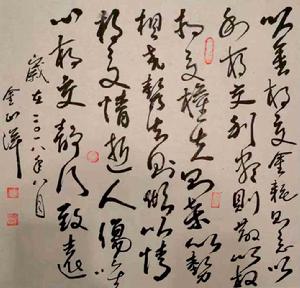 以金相交金耗则忘以
利相交利尽则散以权
相交权失则弃以势
相交势则倾以情
相交情逝人伤唯
心相交静行致远
岁在二〇一八年八月
金